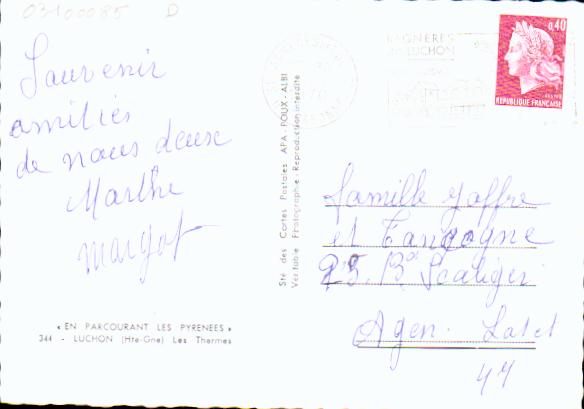 03100085 D
Souvenir
amitiés
de nous deux
Marthe
Margot
« EN PARCOURANT LES PYRENEES »
344 - LUCHON (Hte-Gne) Les Thermes
Sté des Cartes Postales APA-POUX-ALBI
Véritable Photographie - Reproduction interdite
BAGNÈRES
LUCHON
0,40
REPUBLIQUE FRANÇAISE
famille Jaffre
et
25. Bd Scaliger
Agen. Lot et
47